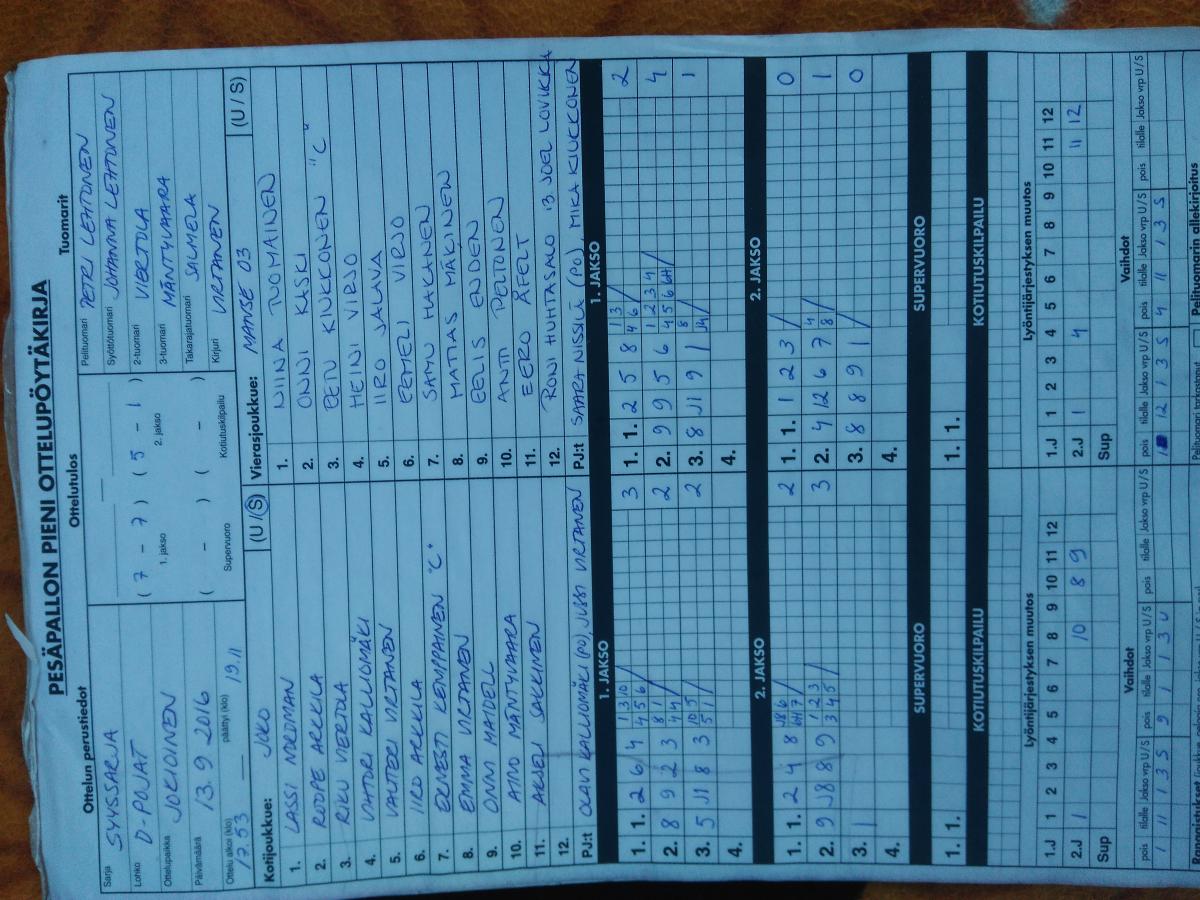 PESÄPALLON PIENI OTTELUPÖYTÄKIRJA
Ottelun perustiedot
Sarja SYYSSARJA
Lohko D-POJAT
Ottelupaikka JOKIOINEN
Päivämäärä 13.9 2016
Ottelu alkoi (klo) 17.53 päättyi (klo) 19.11
Ottelutulos
( 7 - 7 ) ( 5 - 1 )
1. jakso 2. jakso
( - ) ( - )
Supervuoro Kotiutuskilpailu
Tuomarit
Pelituomari PETRI LEHTONEN
Syöttötuomari JOHANNA LEHTONEN
2-tuomari VIERTOLA
3-tuomari MÄNTYVAARA
Takarajatuomari SALMELA
Kirjuri VIRTANEN
Kotijoukkue: JOKO (U/S)
1. LASSI NORDMAN
2. ROOPE ARKKILA
3. RIKU VIERTOLA
4. VIHTORI KALLIOMÄKI
5. VALTTERI VIRTANEN
6. IIRO ARKKILA
7. ERNESTI KEMPPAINEN "C"
8. EMMA VIRTANEN
9. ONNI MAIDELL
10. AIMO MÄNTYVAARA
11. AKSELI SAKKINEN
12.
PJ:t OLAVI KALLIOMÄKI (PO), JUSSI VIRTANEN
Vierasjoukkue: MANSE 03 (U/S)
1. NIINA TUOMAINEN
2. ONNI KASKI
3. EETU KIUKKONEN "C"
4. HEINI VIRJO
5. IIRO JALAVA
6. EEMELI VIRJO
7. SAMU HAKANEN
8. MATIAS MÄKINEN
9. EELIS ENDEN
10. ANTI PELTONEN
11. EERO ÄFELT
12. RONI HUHTASALO 13 JOEL LOVIKKA
PJ:t SAARA NISSILÄ (PO), MIKA KIUKKONEN
1. JAKSO
1. 1. 2 6 4 3
2. 8 9 2 3 2
3. 5 J1 8 3 2
4.
1. JAKSO
1. 1. 2 5 8 2
2. 9 9 5 6 4
3. 8 J1 9 1 1
4.
2. JAKSO
1. 1. 2 4 8 2
2. 9 J8 8 9 3
3. 1
4.
2. JAKSO
1. 1. 1 2 3 0
2. 4 12 6 7 1
3. 8 8 9 1 0
4.
SUPERVUORO
1. 1.
SUPERVUORO
1. 1.
KOTIUTUSKILPAILU
KOTIUTUSKILPAILU
Lyöntijärjestyksen muutos
1 2 3 4 5 6 7 8 9 10 11 12
1.J
2.J 1 10 8 9
Sup
Lyöntijärjestyksen muutos
1 2 3 4 5 6 7 8 9 10 11 12
1.J
2.J 1 4 11 12
Sup
Vaihdot
pois tilalle Jakso vrp U/S pois tilalle Jakso vrp U/S pois tilalle Jakso vrp U/S
1 11 1 3 S 9 1 1 3 U
Vaihdot
pois tilalle Jakso vrp U/S pois tilalle Jakso vrp U/S pois tilalle Jakso vrp U/S
12 1 3 S 4 11 1 3 S
Pelituomarin allekirjoitus